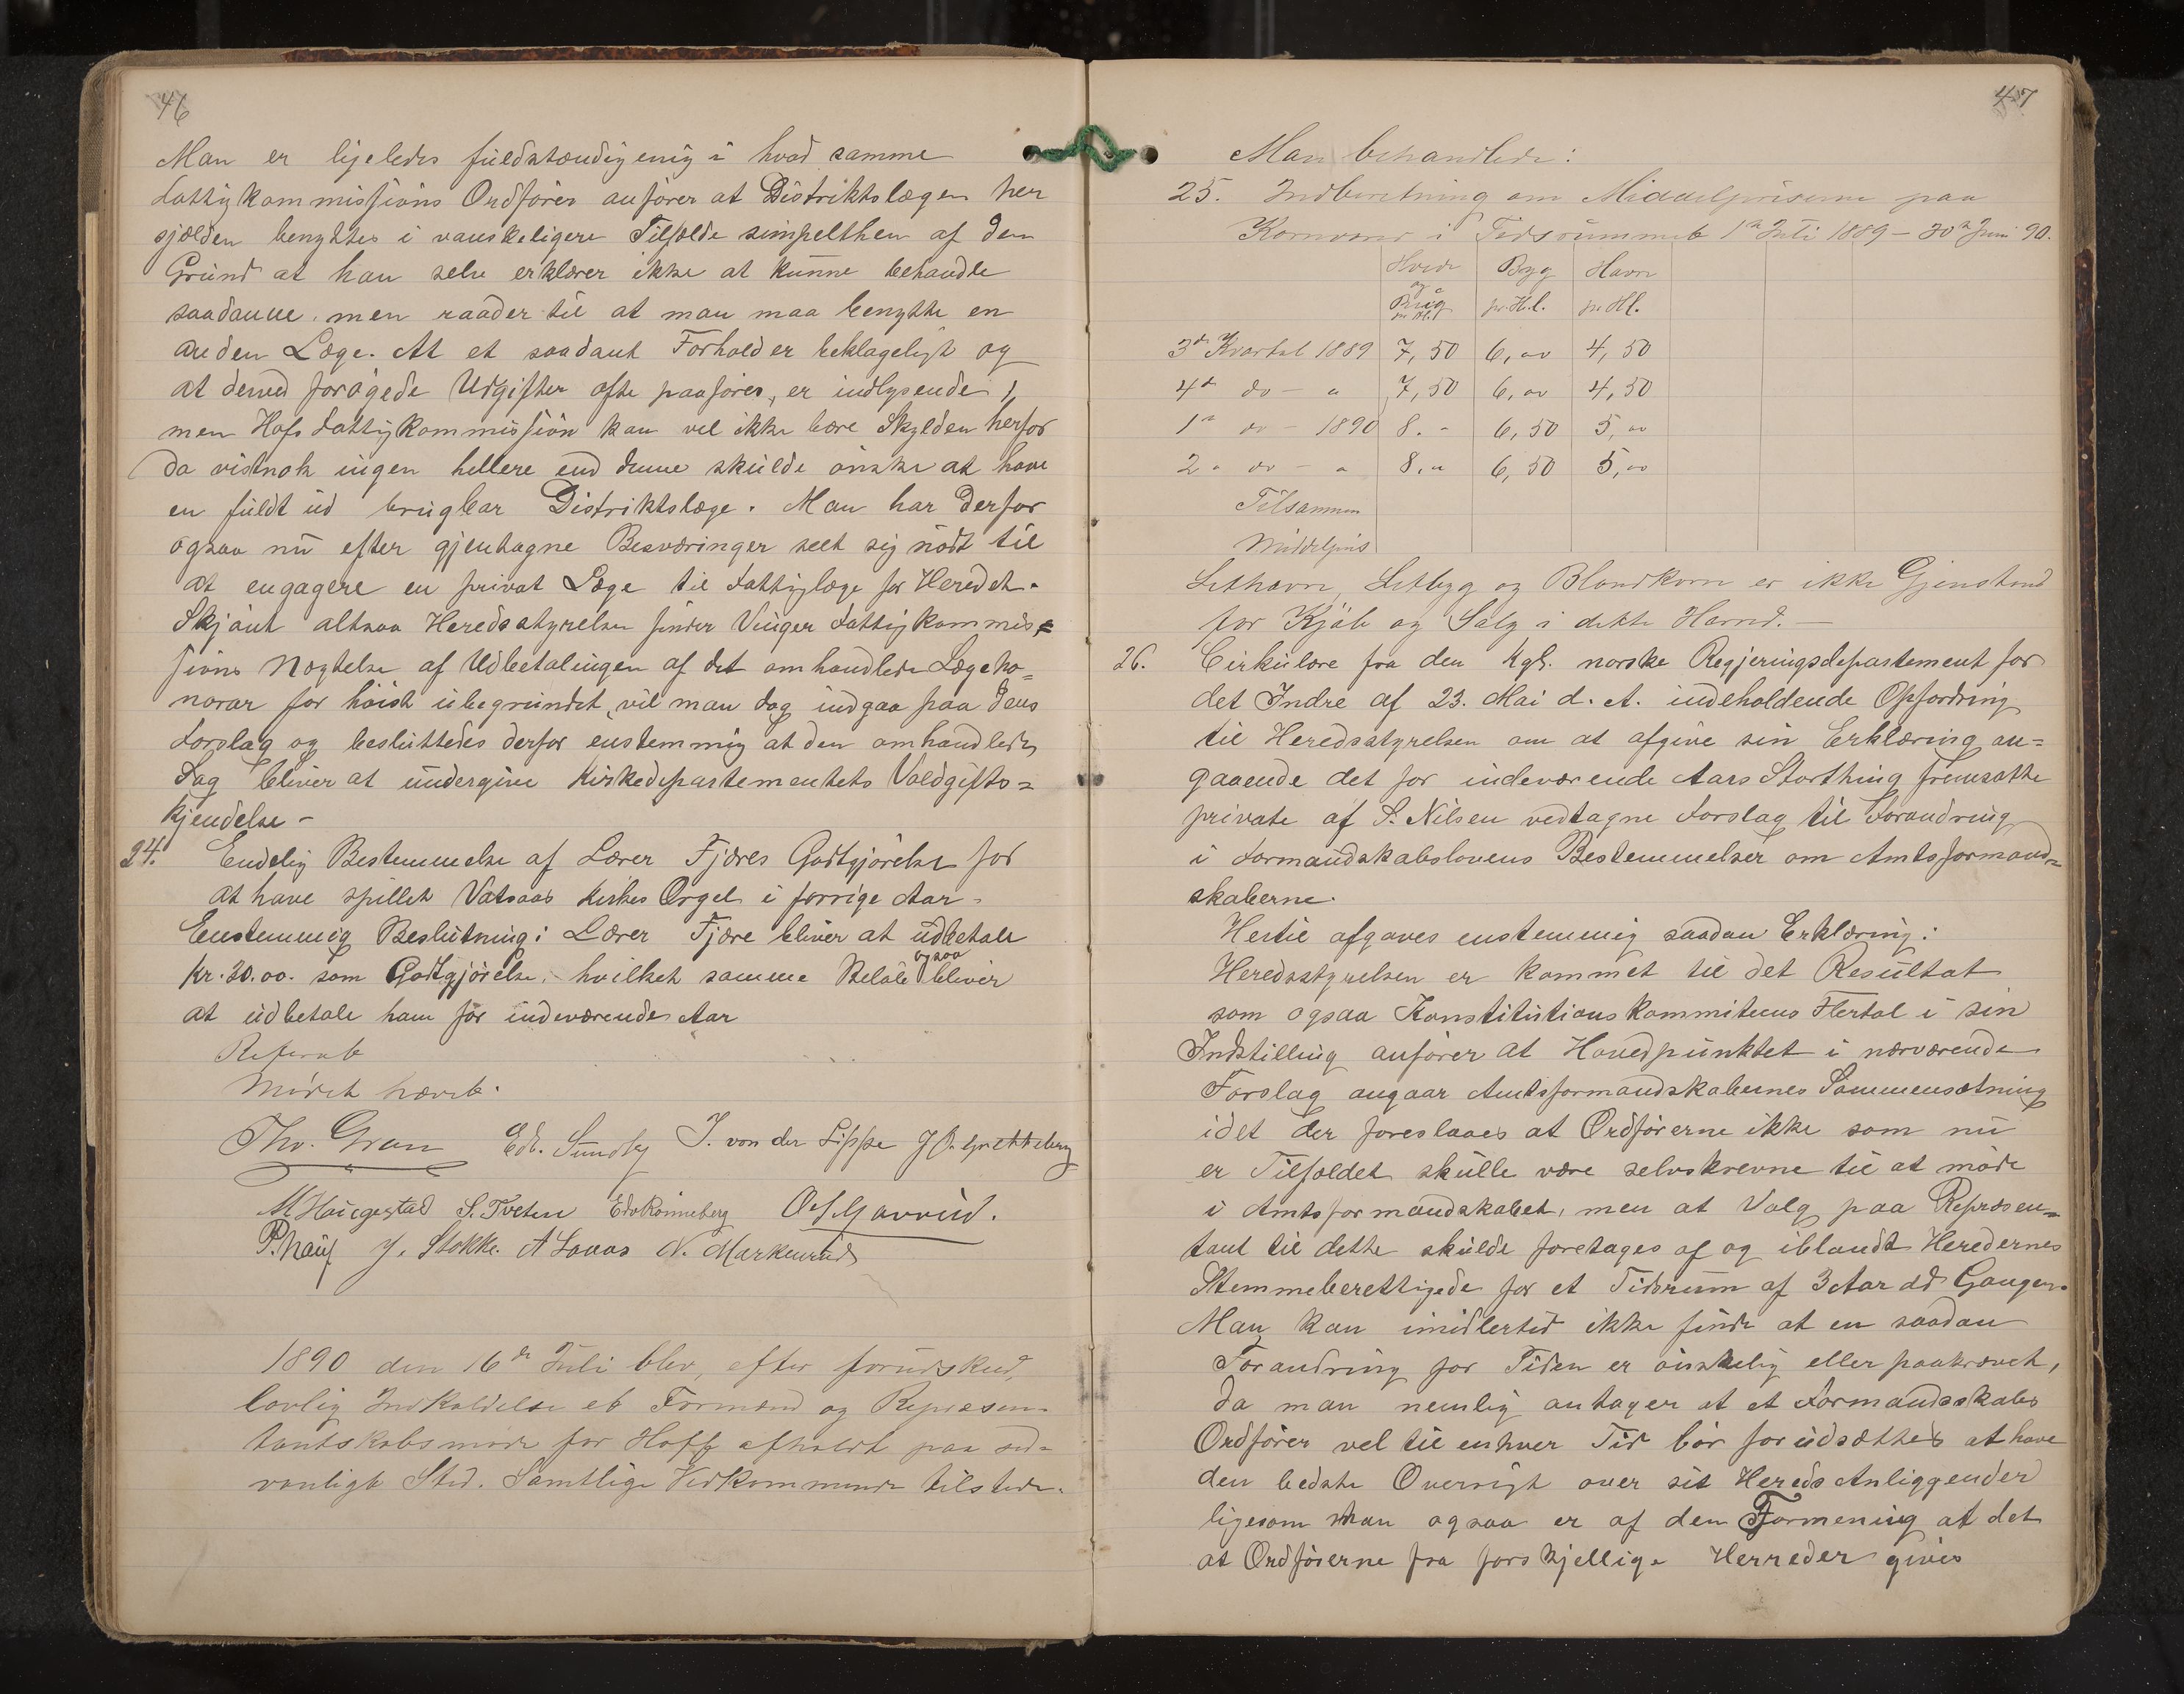 46
Man er ligeledes fuldstændig enig i hvad samme
Fattigkommissions Ordfører anfører at Distriktslægen her
sjælden benyttes i vanskeligere Tilfælde simpelthen af den
Grund at han selv erklærer ikke at kunne behandle
saadanne men raader til at man maa benytte en
anden Læge. At et saadant Forhold er beklageligt og
at derved forøgede Udgifter ofte paaføres, er indlysende,
men Hofs Fattigkommission kan vel ikke bære Skylden herfor
da vistnok ingen hellere end denne skulde ønske at have
en fuldt ud brugbar Distriktslæge. Man har derfor
ogsaa nu efter gjentagne Besværinger seet sig nødt til
at engagere en privat Læge til Fattiglæge for Heredet.
Skjønt altsaa Heredsstyrelsen finder Vinger Fattigkommis=
sions Nægtelse af Udbetalingen af det omhandlede Lægeho=
norar for høist ubegrundet, vil man dog indgaa paa dens
Forslag og besluttedes derfor enstemmig at den omhandlede
Sag bliver at undergive Kirkedepartementets Voldgifts=
kjendelse -
24. Endelig Bestemmelse af Lærer Fjæres Godtgjørelse for
at have spillet Vatsaas Kirkes Orgel i forrige Aar.
Enstemmig Beslutning: Lærer Fjære bliver at udbetale
Kr. 20.00. som Godtgjørelse, hvilket samme Beløb ogsaa bliver
at udbetale ham for indeværende Aar
Referat
Mødet hævet.
Thv. Gran Edv. Sundby J. von der Lippe
M Haugestad S. Tveten Edv Rønneberg
J. Stokke. N. Markerud
1890 den 16de Juli blev, efter forudskud,
lovlig Indkaldelse et Formænd og Repræsen-
tantskabsmøde for Hoff afholdt paa sed-
vanligt Sted. Samtlige Vedkommende tilstede.
47
Man behandlede:
25. Indberetning om Middelpriserne paa
Kornvarer i Tidsrummet 1ste Juli 1889 - 30te Juni 90.
Hvede og Rug pr Hl. Byg pr. H.l. Havre pr. Hl.
3de Kvartal 1889 7,50 6,00 4,50
4de do - " 7,50 6,00 4,50
1ste do - 1890 8. - 6,50 5,00
2 " do - " 8. " 6,50 5,00
Tilsammen
Middelpris
Lethavre, Letbyg og Blandkorn er ikke Gjenstand
for Kjøb og Salg i dette Herred. -
26. Cirkulære fra den kgl. norske Regjeringsdepartement for
det Indre af 23. Mai d. A. indeholdende Opfordring
til Heredsstyrelsen om at afgive sin Erklæring an=
gaaende det for indeværende Aars Storthing fremsatte
private af S. Nilsen vedtagne Forslag til Forandring
i Formandskabslovens Bestemmelser om Amtsformand=
skaberne.
Hertil afgaves enstemmig saadan Erklæring:
Heredsstyrelsen er kommet til det Resultat
som ogsaa Konstitutionskommiteens Flertal i sin
Indstilling anfører at Hovedpunktet i nærværende
Forslag angaar Amtsformandskabernes Sammensætning
idet der foreslaaes at Ordførerne ikke som nu
er Tilfældet skulle være selvskrevne til at møde
i Amtsformandskabet, men at Valg paa Repræsen=
tant til dette skulde foretages af og iblandt Heredernes
Stemmeberettigede for et Tidsrum af 3 Aar ad Gangen.
Man kan imidlertid ikke finde at en saadan
Forandring for Tiden er ønskelig eller paakrævet,
da man nemlig antager at et Formandsskabs
Ordfører vel til enhver Tid bør forudsættes at have
den bedste Oversigt over sit Hereds Anliggender
ligesom man ogsaa er af den Formening at det
at Ordførerne fra forskjellige Herreder gives